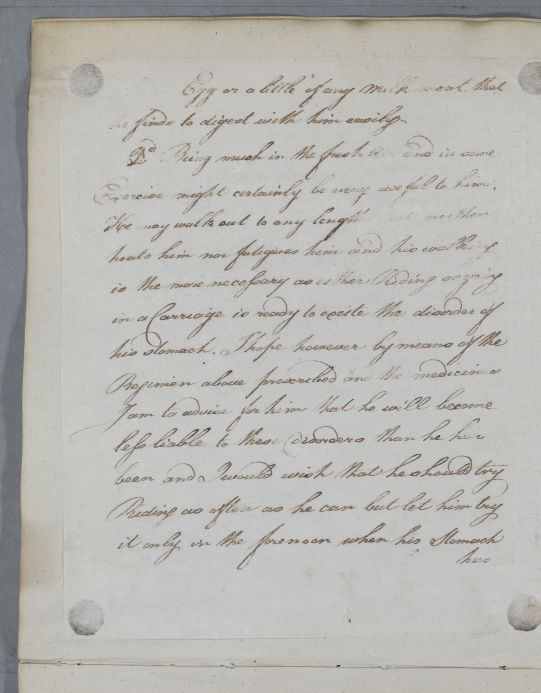 Egg or a little of any Milk meat that
he finds to digest with him easily
3d Being much in the fresh air and in some
Exercise might certainly be very useful to him.
He may walk out to any length that neither
heats him nor fatigues him and his walking
is the more necessary as either Riding or going
in a Carriage is ready to excite the disorder of
his stomach. I hope however by means of the
Regimen above prescribed and the medicines
I am to advise for him that he will become
less liable to these disorders than he has
been and I would wish that he should try
Riding as often as he can but let him try
it only in the forenoon when his Stomach
has